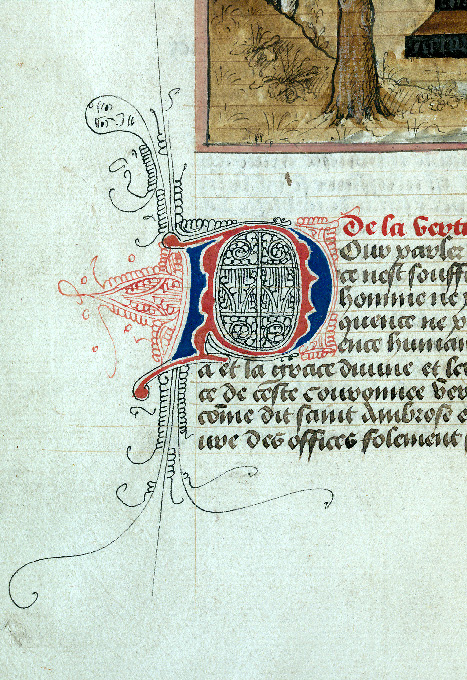 De la vertu
Pour parler
ce nest souffi
homme ne p
quence ne p
ence humai
a et la grace diuine et le
ce de ceste couronnee ver
cõme dit saint Ambrose e
iure des offices solement